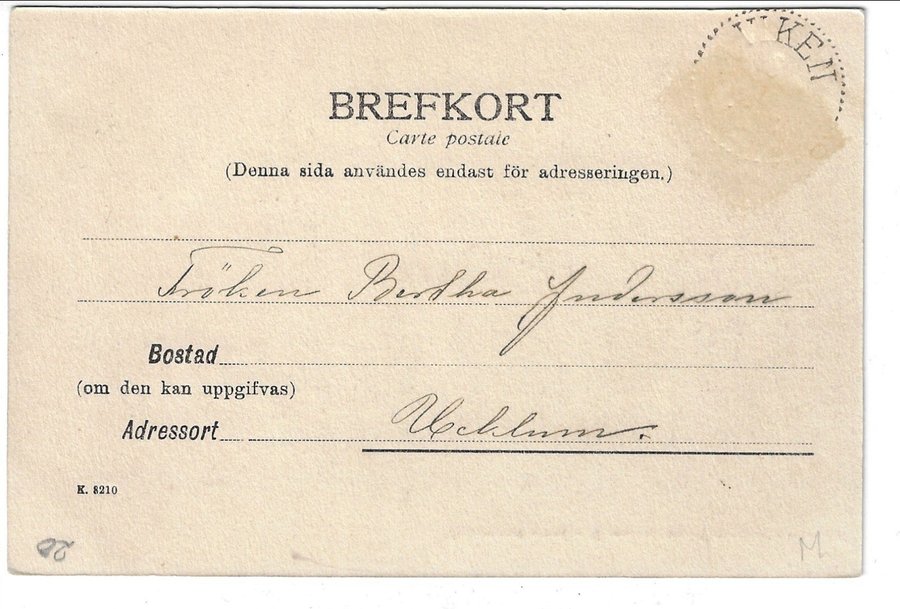 KEN
BREFKORT
Carte postale
(Denna sida användes endast för adresseringen.)
Fröken Bertha Andersson
Bostad
(om den kan uppgifvas)
Adressort Ucklum.
K. 8210
20
M